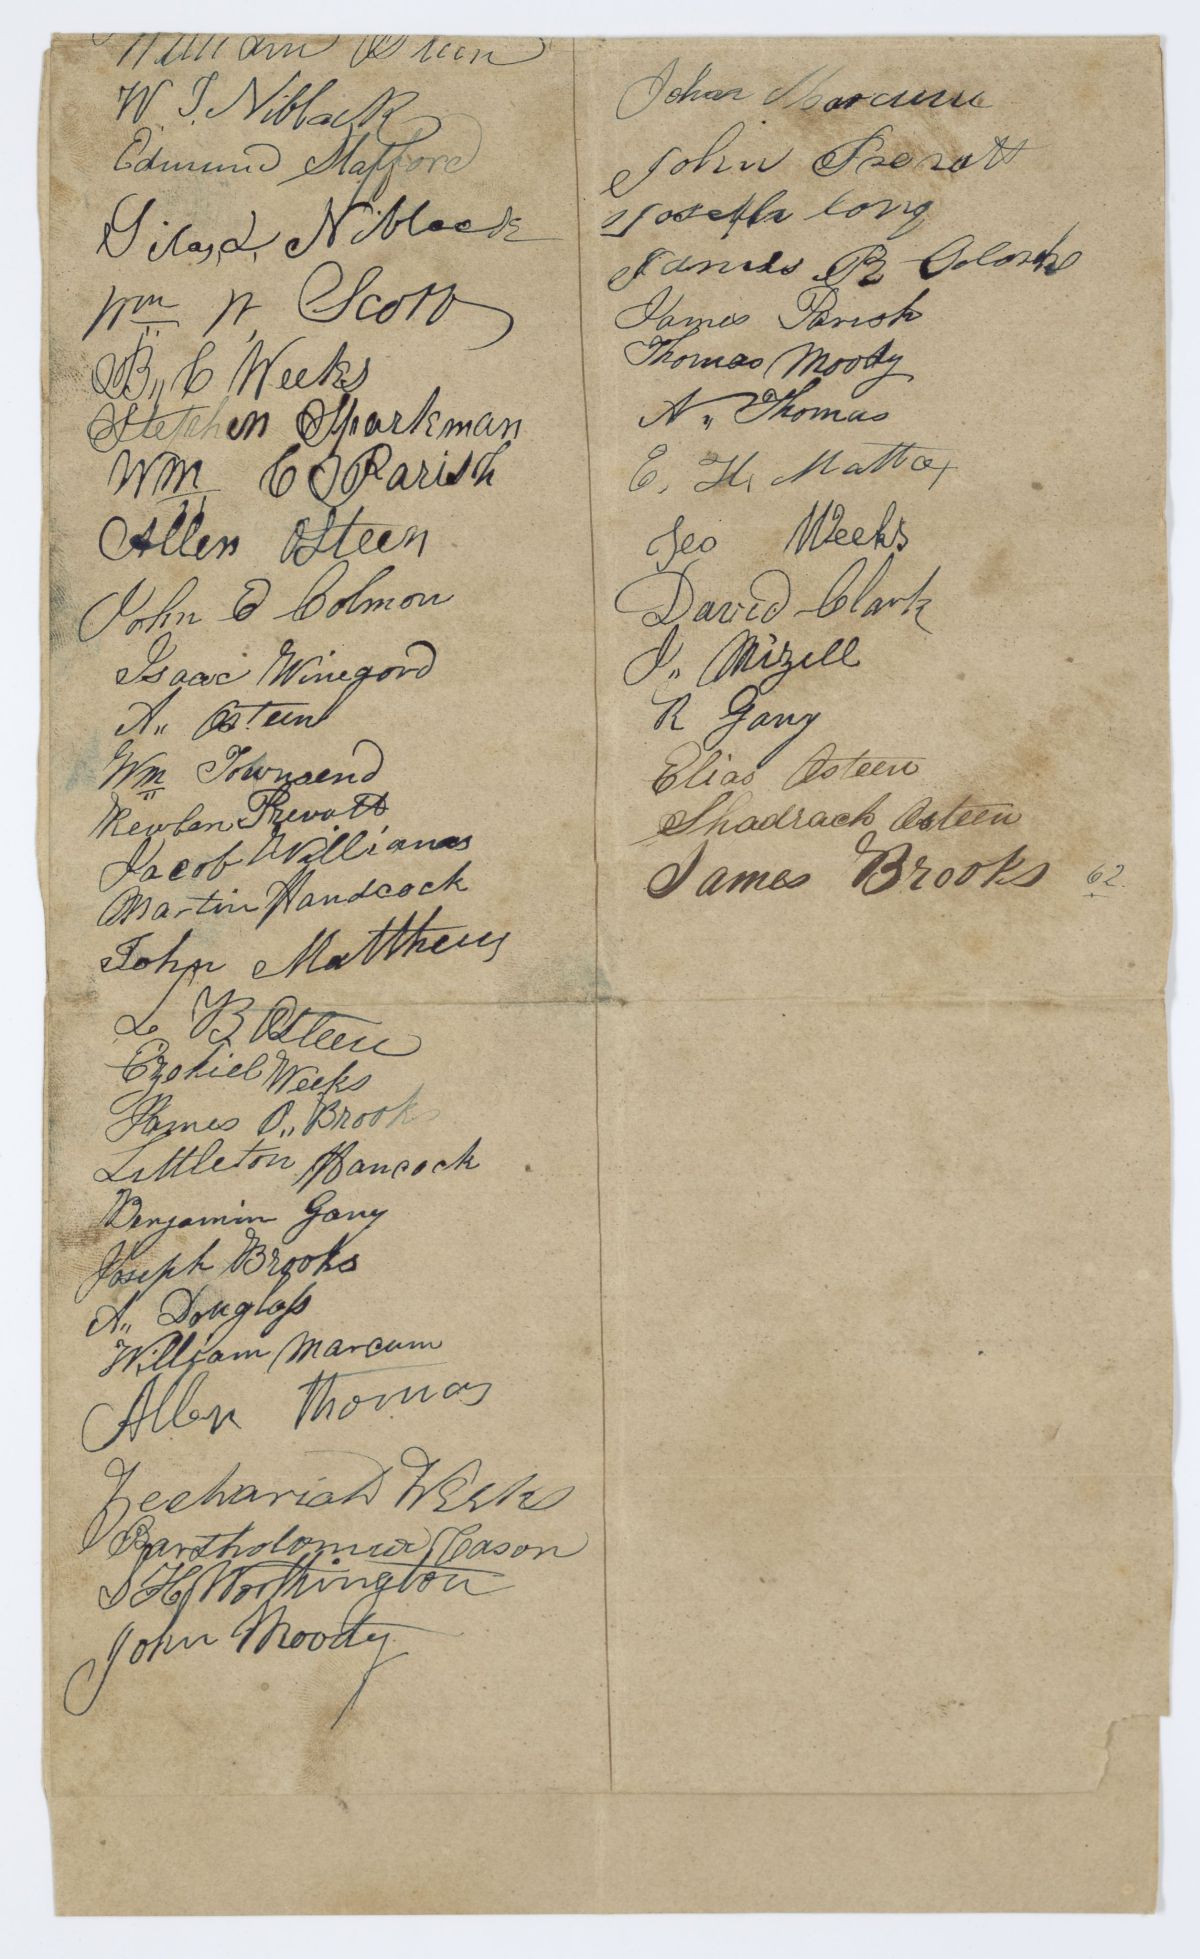 William
W. T. Niblack
Edmund Stafford
Silas L. Niblack
Wm W. Scott
B,, C Weeks
Stephen Sparkman
Wm C Parish
Allen Osteen
John D Colmon
Isaac Winegord
A,, Osteen
Wm Townsend
Reuben Prevatt
Jacob Williams
Martin Handcock
John Matthews
L B Osteen
Ezekiel Weeks
James O,, Brooks
Littleton Hancock
Benjamin Gany
Joseph Brooks
A,, Douglass
William Marcum
Allen Thomas
Zechariah Weeks
Bartholomew Cason
S H Worthington
John Moody
John Marcum
John Prevatt
Joseph Long
James B
James Parish
Thomas Moody
A,, Thomas
E. H. Mattox
Geo Weeks
David Clark
J,, Mizell
R Gany
Elias Osteen
Shadrach Osteen
James Brooks 62